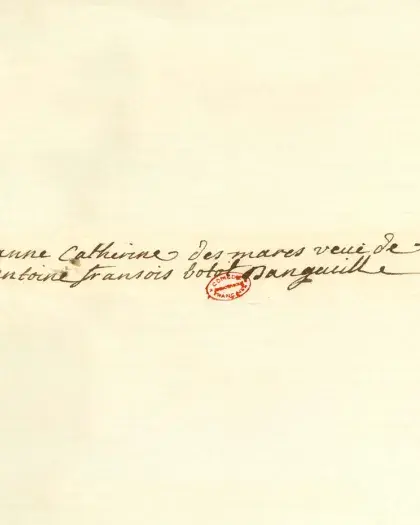 anne Catherine des mares veue de
antoine fransois botot Dangeuille
COMEDIE
FRANÇAISE